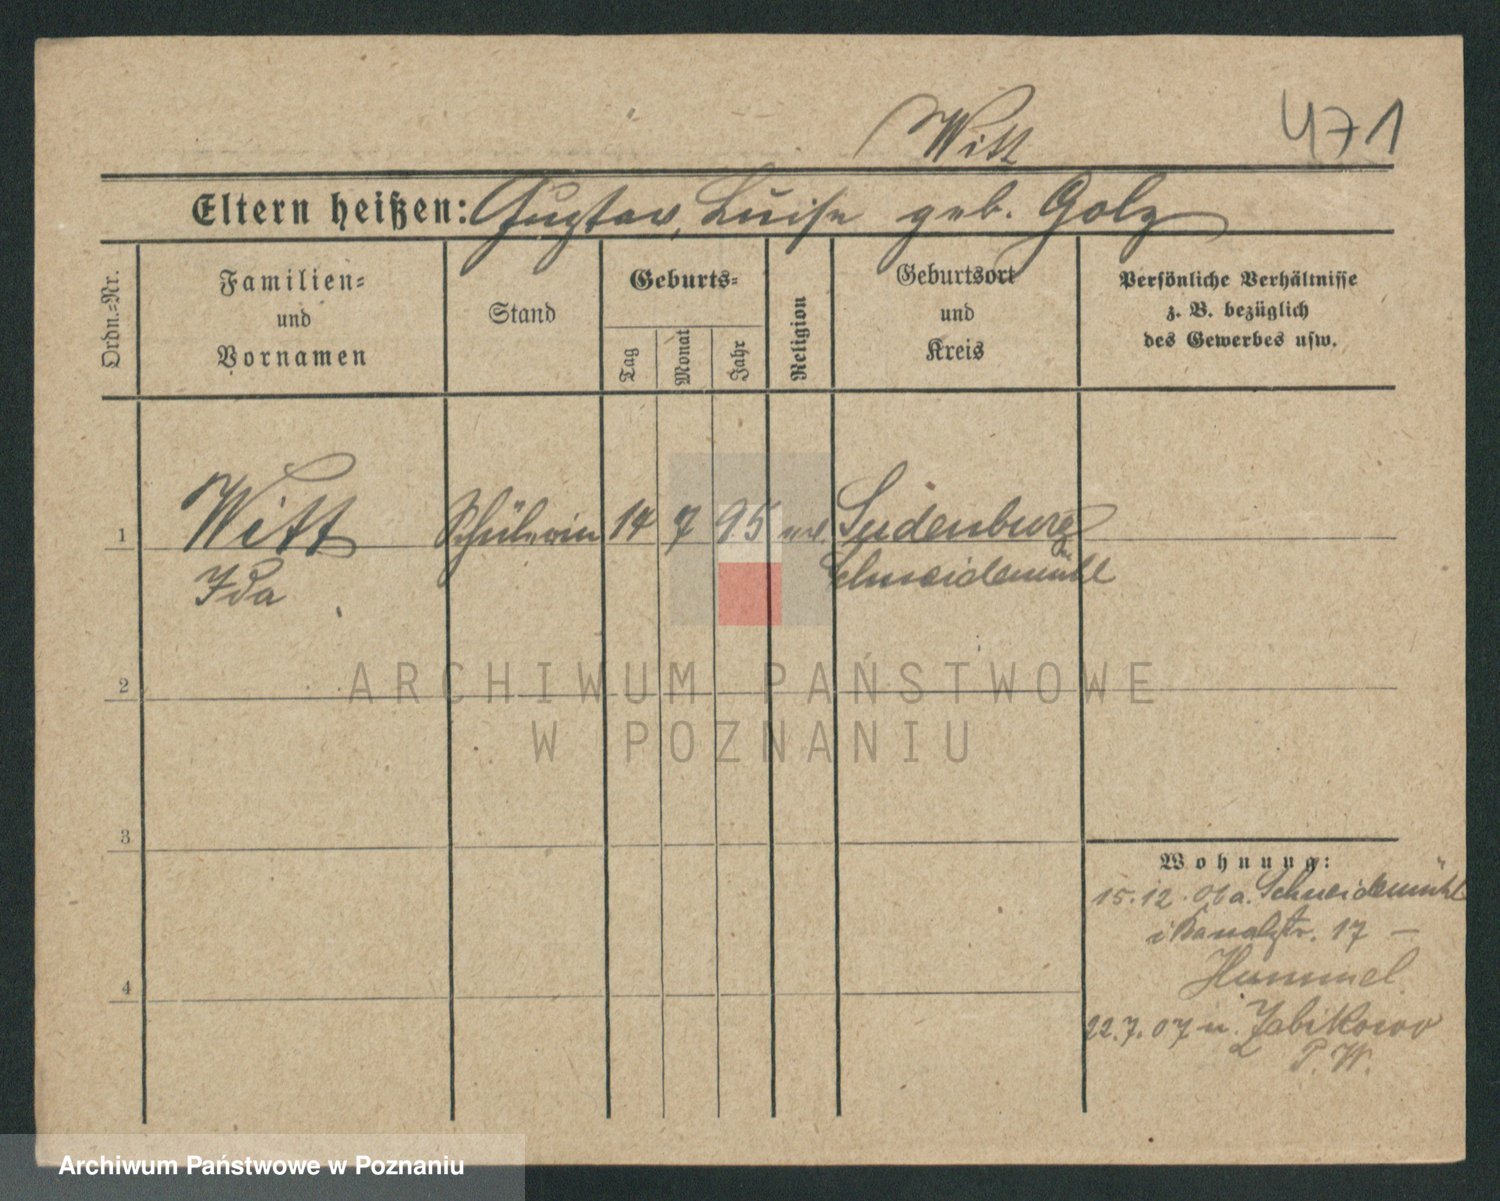 Witt
471
Eltern heißen: Gustav, Luise geb. Golz
Ordn.=Nr.
Familien=
und
Vornamen
Stand
Geburts=
Tag
Monat
Jahr
Religion
Geburtsort
und
Kreis
Persönliche Verhältnisse
z. B. bezüglich
des Gewerbes usw.
1
Witt Schülerin 14 7 95 Sudenburg
Ida Schneidemühl
ARCHIWUM PAŃSTWOWE
W POZNANIU
2
3
4
Wohnung:
15.12.06 a. Schneidemühl
Kanalstr. 17 –
Hummel
22.7.07 n. Zabikowo
P. W.
Archiwum Państwowe w Poznaniu